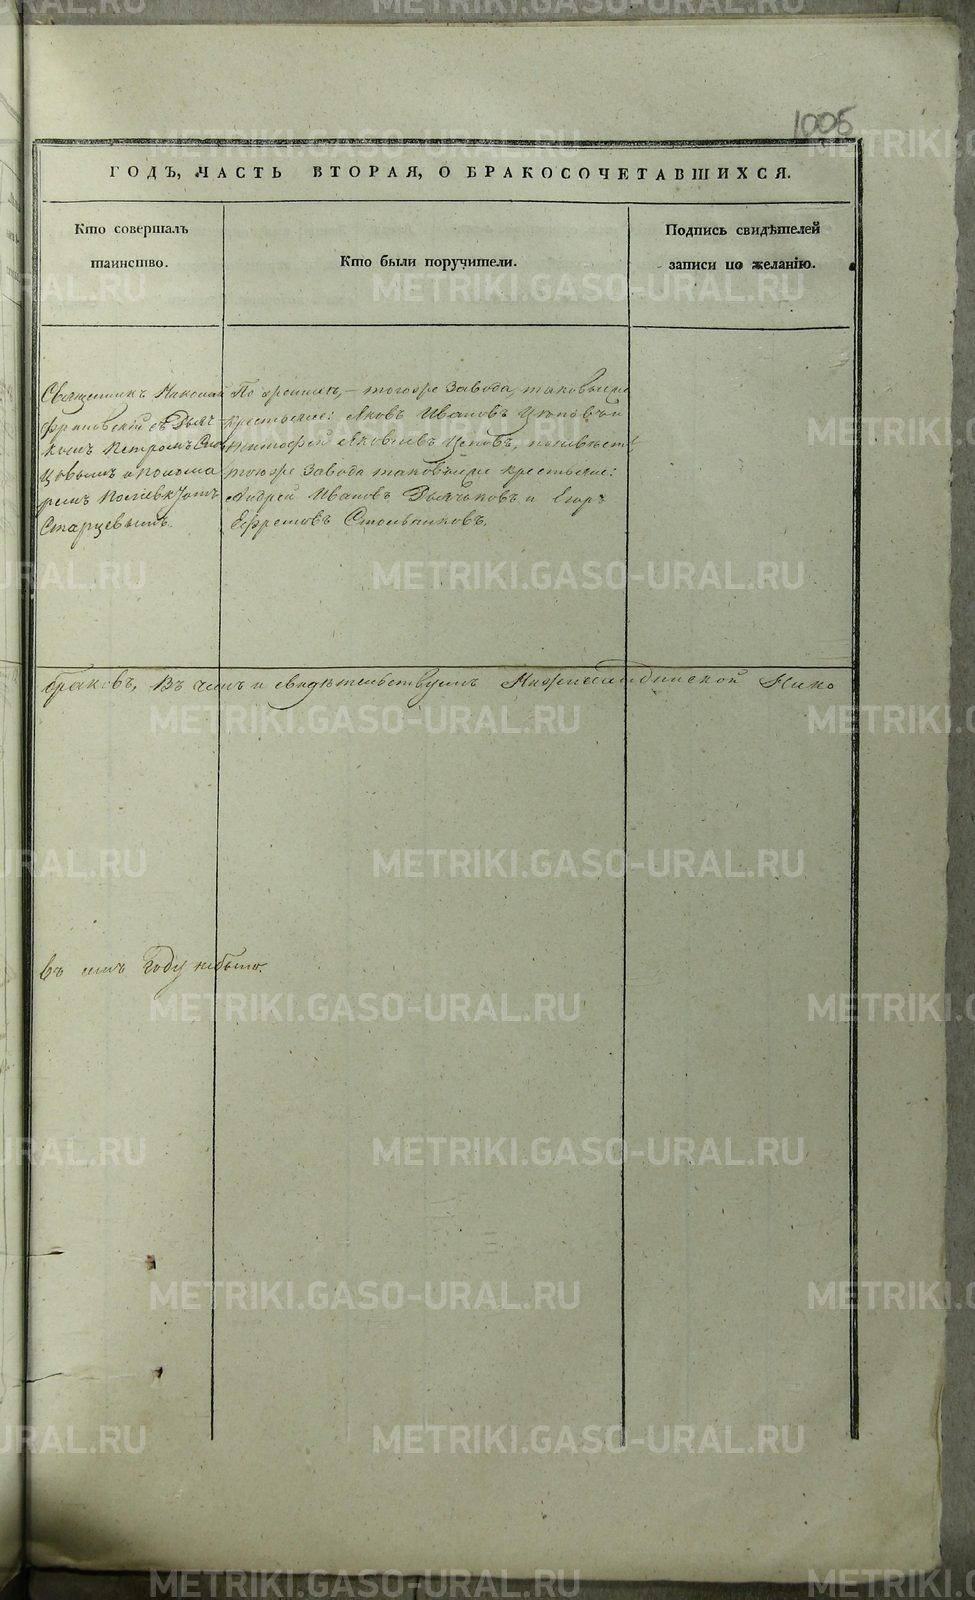 1005
ГОДЪ, ЧАСТЬ ВТОРАЯ, О БРАКОСОЧЕТАВШИХСЯ.
Кто совершалъ
таинство.
Кто были поручители.
Подпись свидѣтелей
записи по желанію.
Священникъ Николай
съ Дьяч
комъ Петромъ
и понома
ремъ
Старцевымъ.
По женихѣ, – тогоже Завода, таковыеже
крестьяне: Яковъ Ивановъ и
Яковлевъ по невѣстѣ
тогоже Завода таковыеже крестьяне:
Андрей Ивановъ Дьячковъ и Егоръ
Ефремовъ Стольниковъ.
браковъ, Въ чемъ и свидѣтельствуемъ Нико
въ семъ году небыло.
METRIKI.GASO-URAL.RU